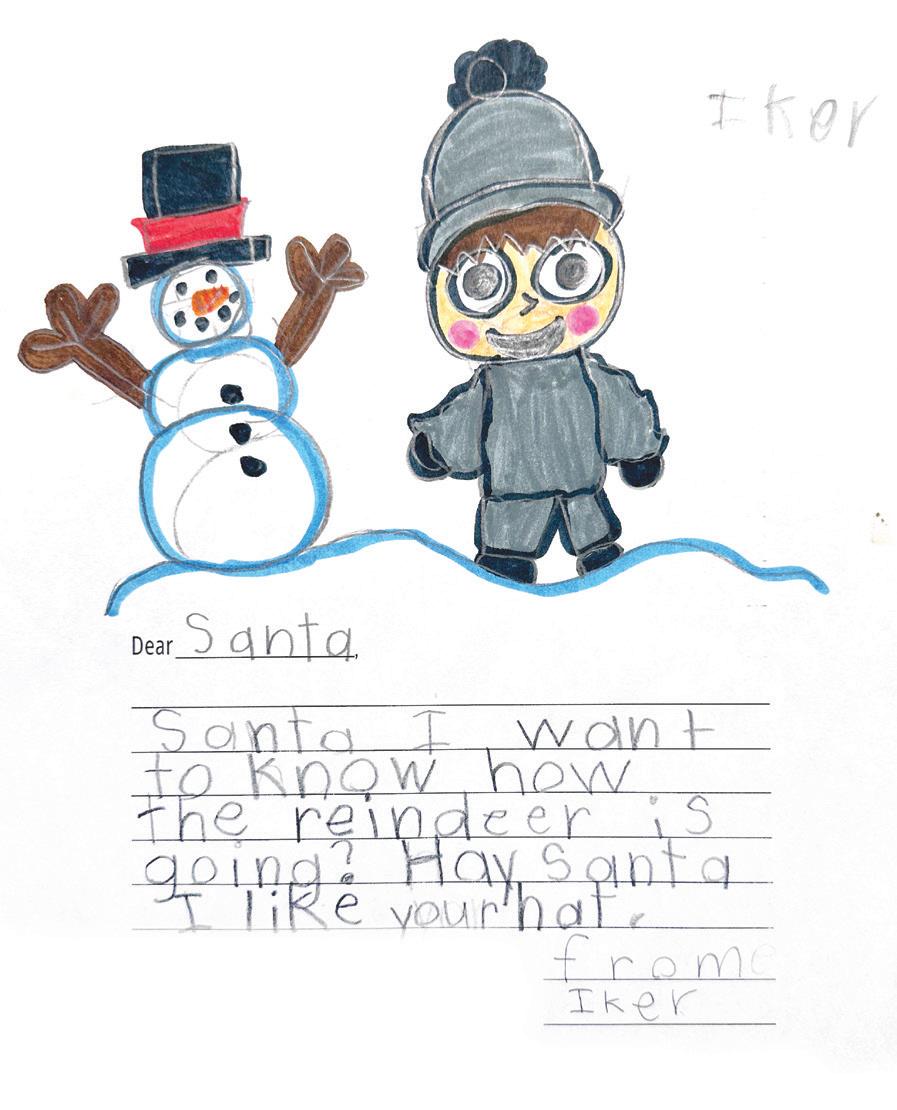 Iker
Dear Santa,
Santa I want
to know how
the reindeer is
going? Hay Santa
I like your hat.
frome
Iker